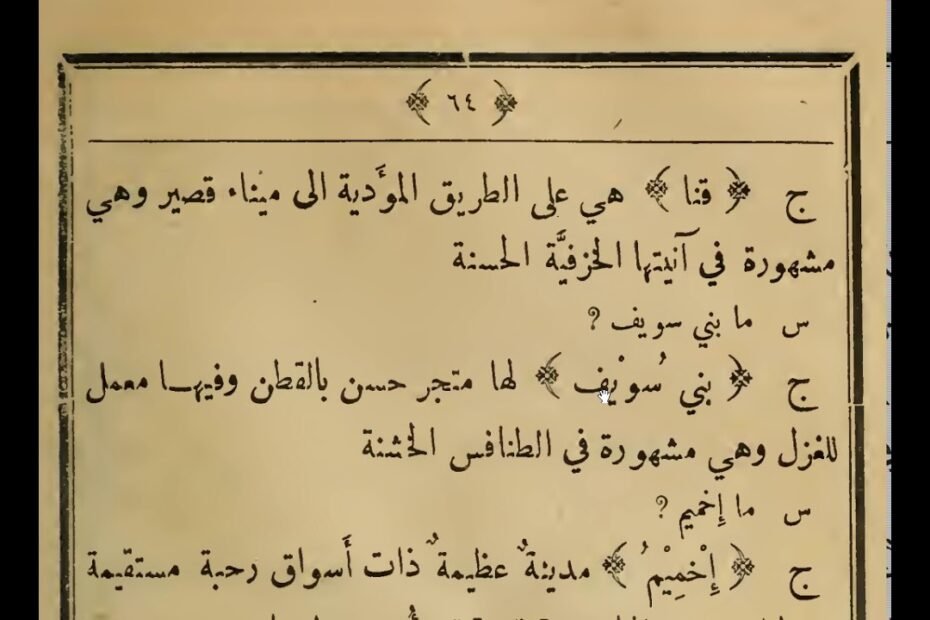 ﴿ ٦٤ ﴾
ج ﴿ قنا ﴾ هي على الطريق المؤَدية الى ميناء قصير وهي
مشهورة في آنيتها الخزفيَّة الحسنة
س ما بني سويف ?
ج ﴿ بني سُويْف ﴾ لها متجر حسن بالقطن وفيها معمل
للغزل وهي مشهورة في الطنافس الخشنة
س ما إِخميم ?
ج ﴿ إِخْمِيْمُ ﴾ مدينةٌ عظيمةٌ ذات أَسواق رحبة مستقيمة